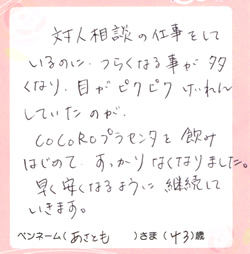 対人相談の仕事をして
いるのに、つらくなる事が多
くなり、目がピクピクけいれん
していたのが、
COCOROプラセンタを飲み
はじめて、すっかりなくなりました。
早く安くなるように継続して
いきます。
ペンネーム(あさとも )さま(43)歳